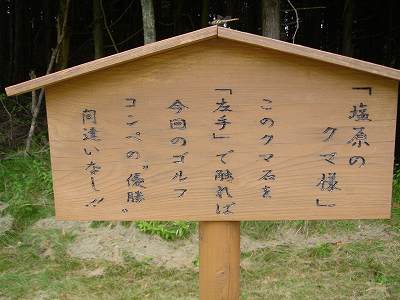 「塩原の
クマ様」
このクマ石を
「左手」で触れば
今回のゴルフ
コンペの〝優勝〟
間違いなし!!